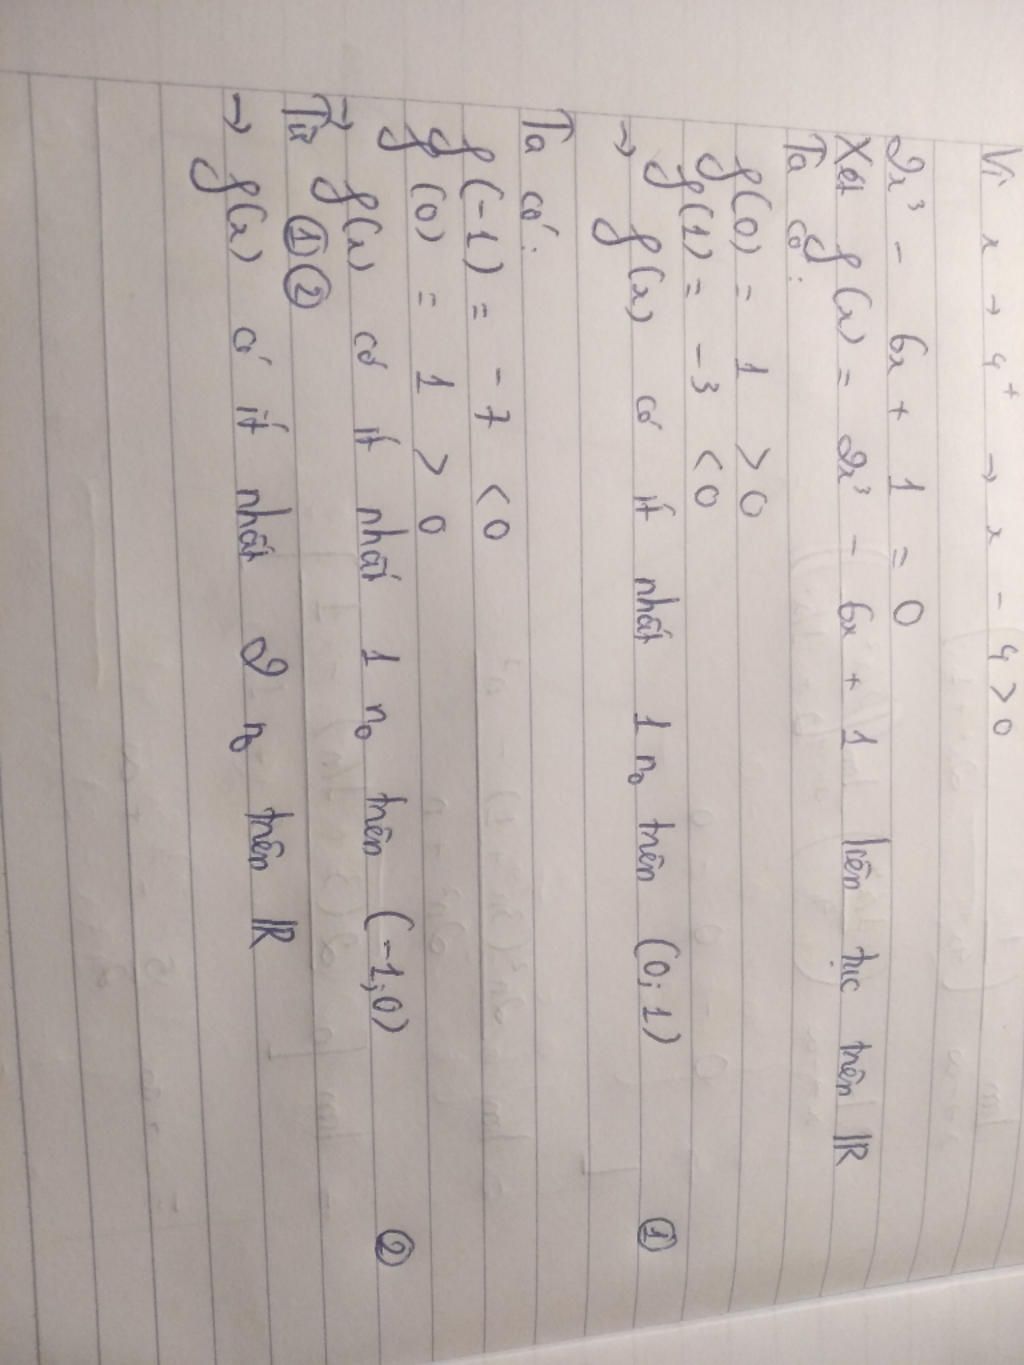 Vì x → 4⁺ → x - 4 > 0
2x³ - 6x + 1 = 0
Xét f(x) = 2x³ - 6x + 1 liên tục trên ℝ
Ta có:
f(0) = 1 > 0
f(1) = -3 < 0
→ f(x) có ít nhất 1 n₀ trên (0; 1) ①
Ta có:
f(-1) = -7 < 0
f(0) = 1 > 0
→ f(x) có ít nhất 1 n₀ trên (-1; 0) ②
Từ ① ②
→ f(x) có ít nhất 2 n₀ trên ℝ